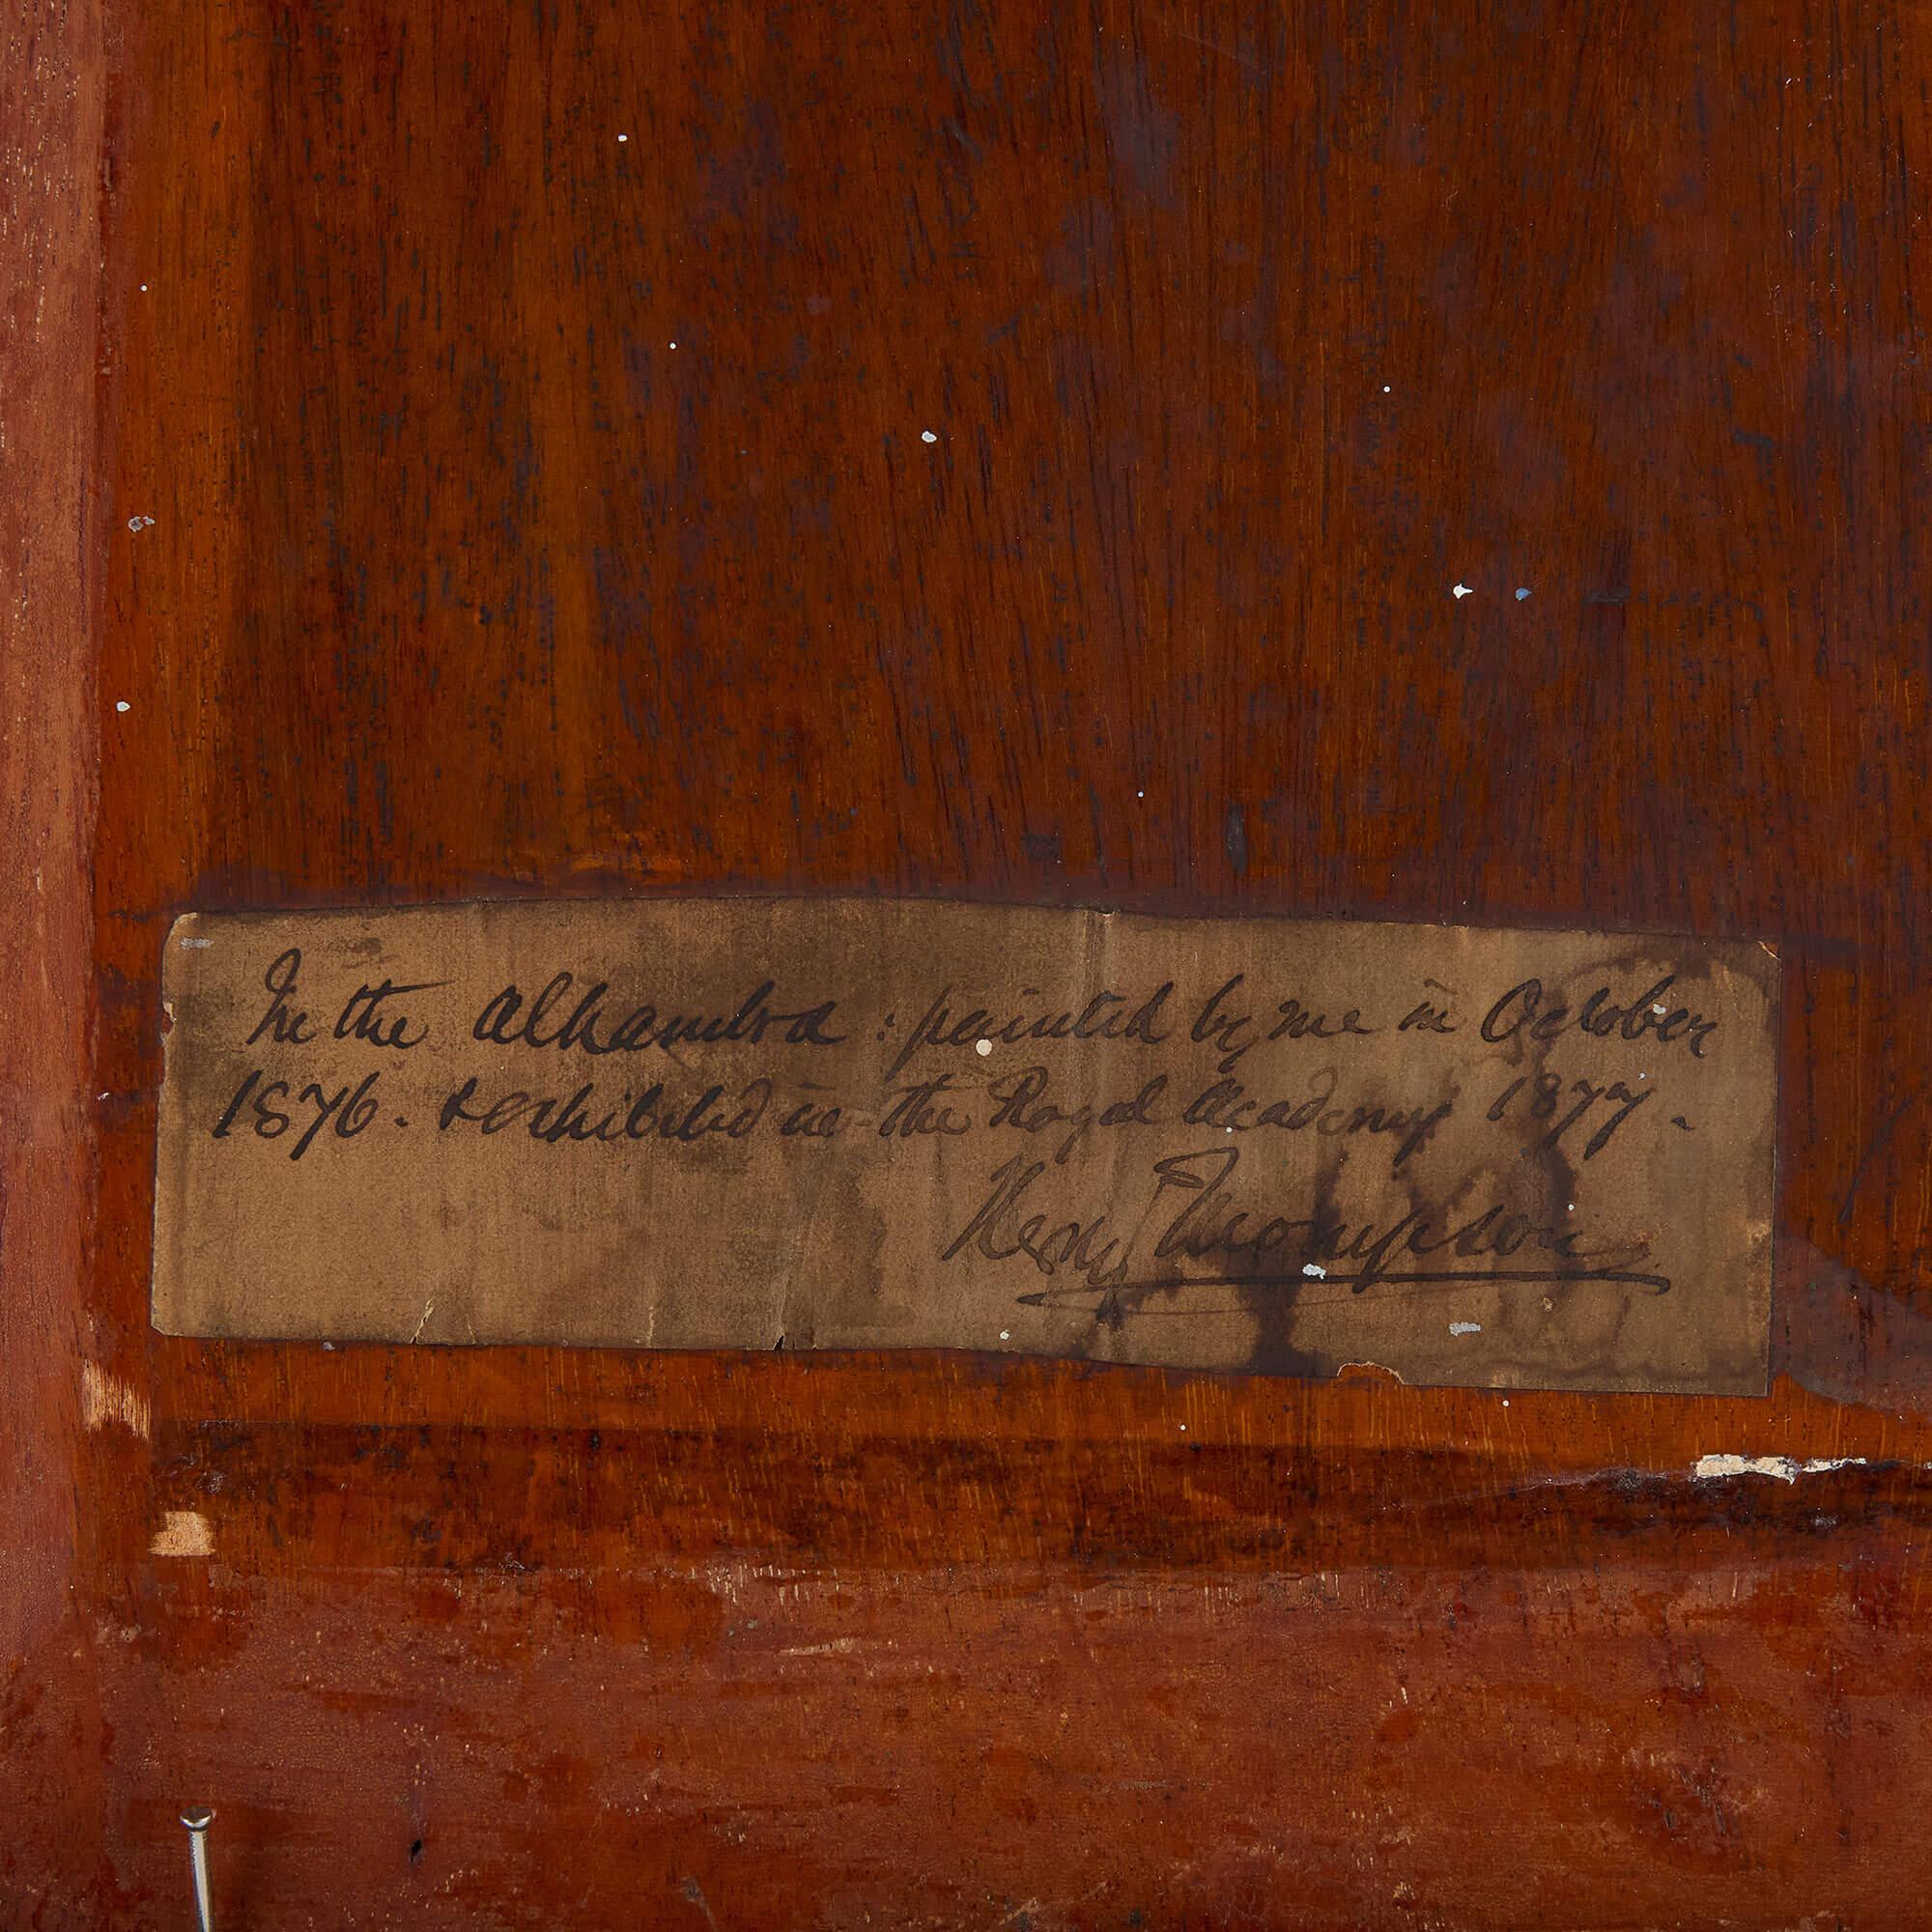 In the Alhambra : painted by me in October
1876. & exhibited in the Royal Academy 1877.
Henry Thompson